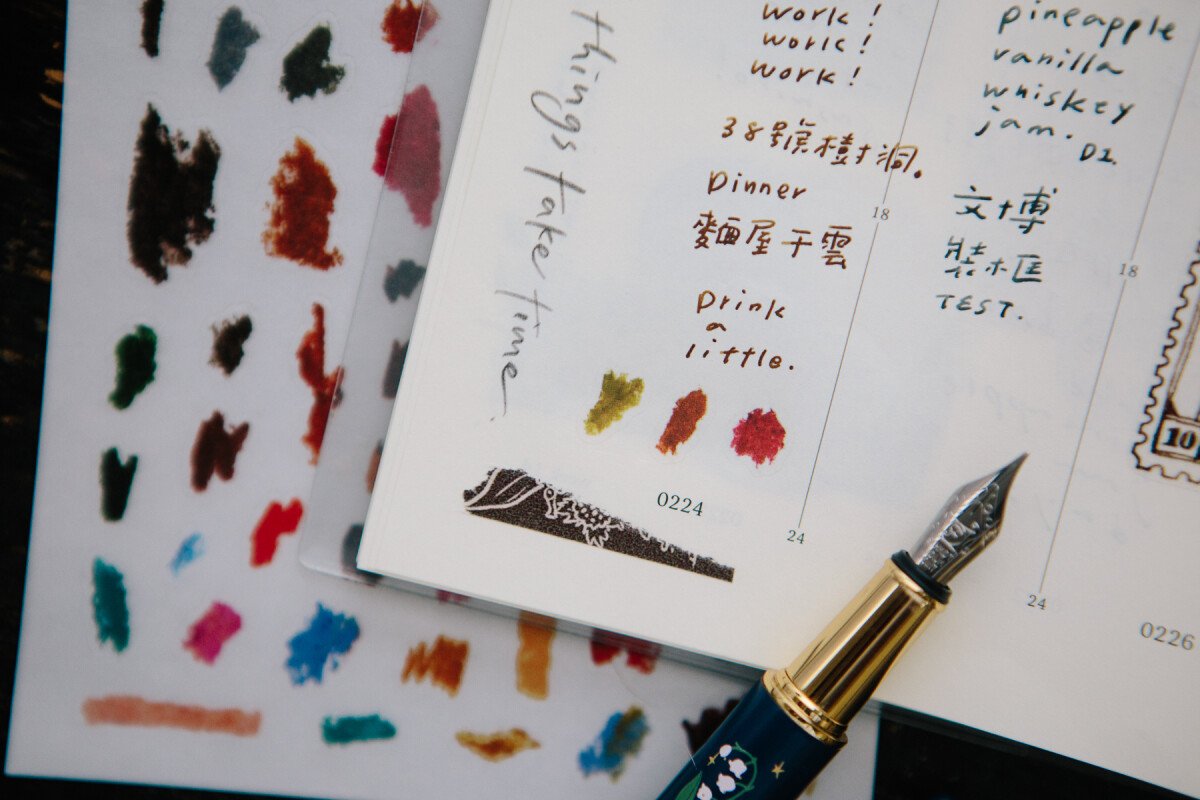 things take time.
work!
work!
work!
38號樹洞。
Dinner
麵屋千雲
Drink
a
little.
0224
18
24
pineapple
vanilla
whiskey
jam.
D2.
文博
裝框
TEST.
18
24
0226
10